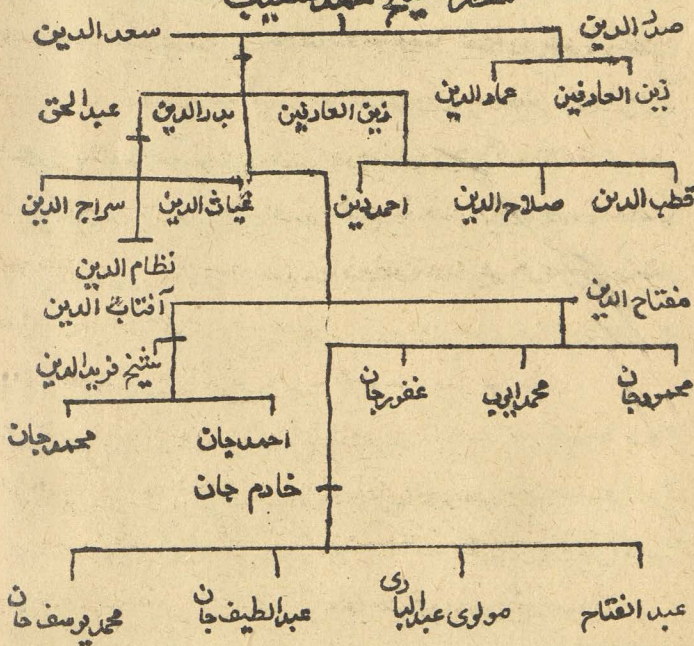 شیخ محمد
صدر الدین
سعد الدین
زین العارفین
عماد الدین
زین العارفین
بدر الدین
عبد الحق
قطب الدین
صلاح الدین
احمد دین
غیاث الدین
سراج الدین
نظام الدین
مفتاح الدین
آفتاب الدین
شیخ فرید الدین
محمود جان
محمد ایوب
غفور جان
احمد جان
محمد جان
خادم جان
عبد الفتاح
مولوی عبد الباری
عبد الطیف جان
محمد یوسف جان